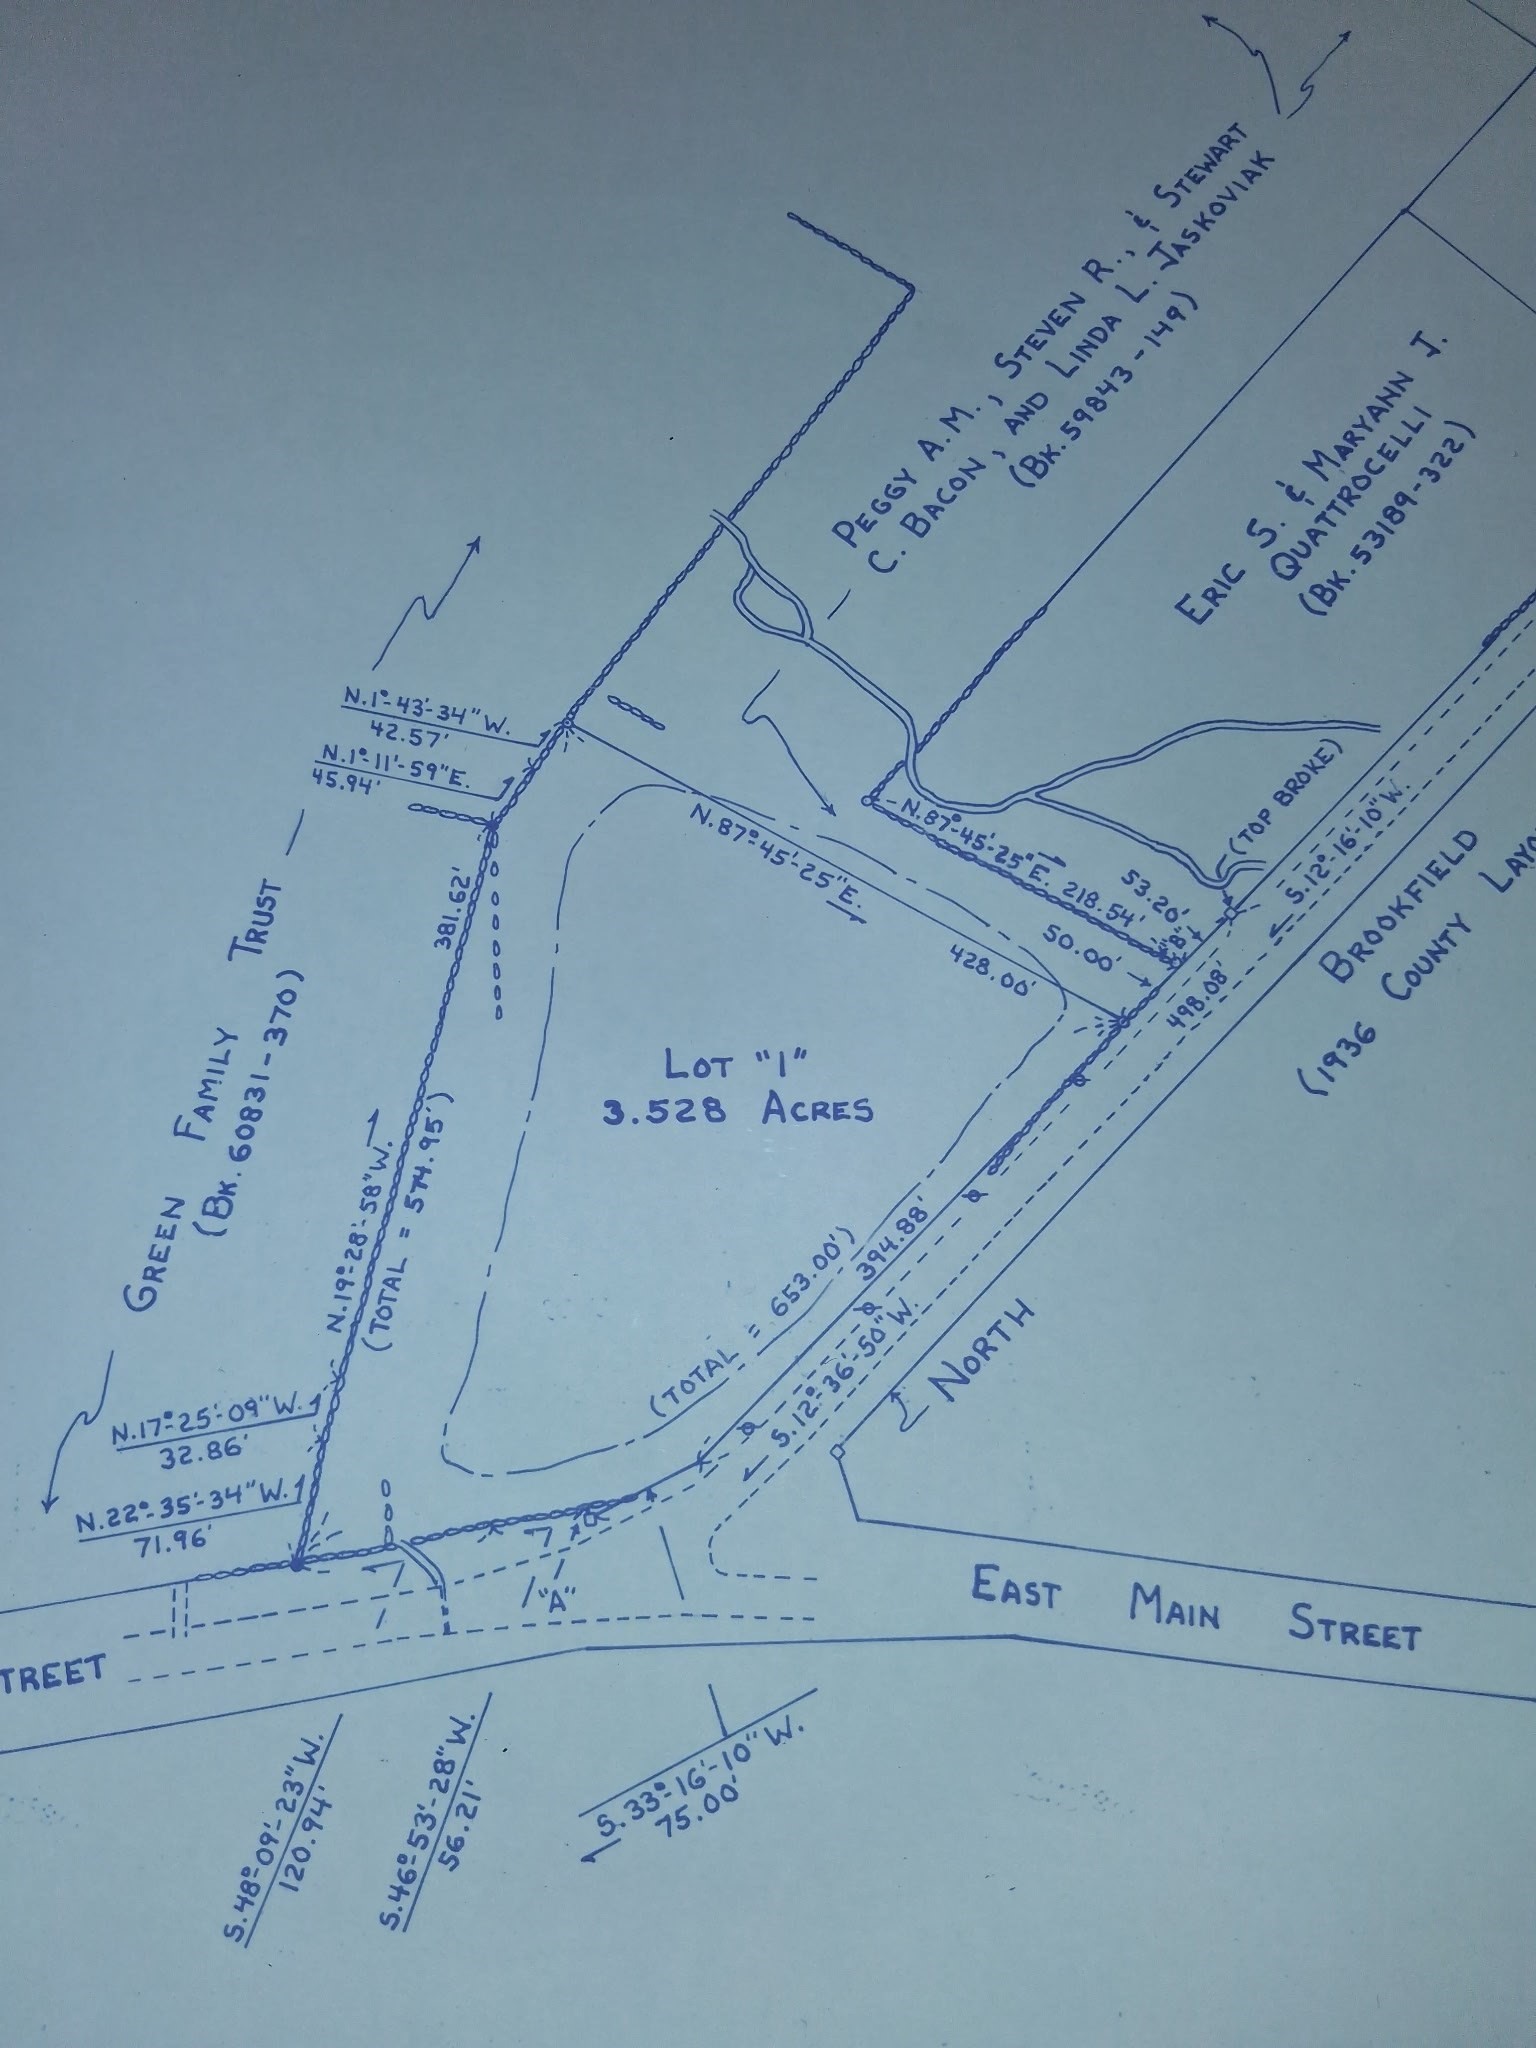 PEGGY A.M., STEVEN R., & STEWART
C. BACON, AND LINDA L. JASKOVIAK
(BK. 59843-149)
ERIC S. & MARYANN J.
QUATTROCELLI
(BK. 53189-322)
N.1°-43'-34"W.
42.57'
N.1°-11'-59"E.
45.94'
N.87°-45'-25"E.
428.00'
N.87°-45'-25"E.
218.54'
53.20'
50.00'
(TOP BROKE)
S.12°-16'-10"W.
498.08'
BROOKFIELD
(1936 COUNTY
381.62'
GREEN FAMILY TRUST
(BK. 60831-370)
LOT "1"
3.528 ACRES
N.19°-28'-58"W.
(TOTAL = 574.95')
(TOTAL = 653.00')
394.88'
S.12°-36'-50"W.
NORTH
N.17°-25'-09"W.
32.86'
N.22°-35'-34"W.
71.96'
"A"
EAST MAIN STREET
TREET
S.48°-09'-23"W.
120.94'
S.46°-53'-28"W.
56.21'
S.33°-16'-10"W.
75.00'